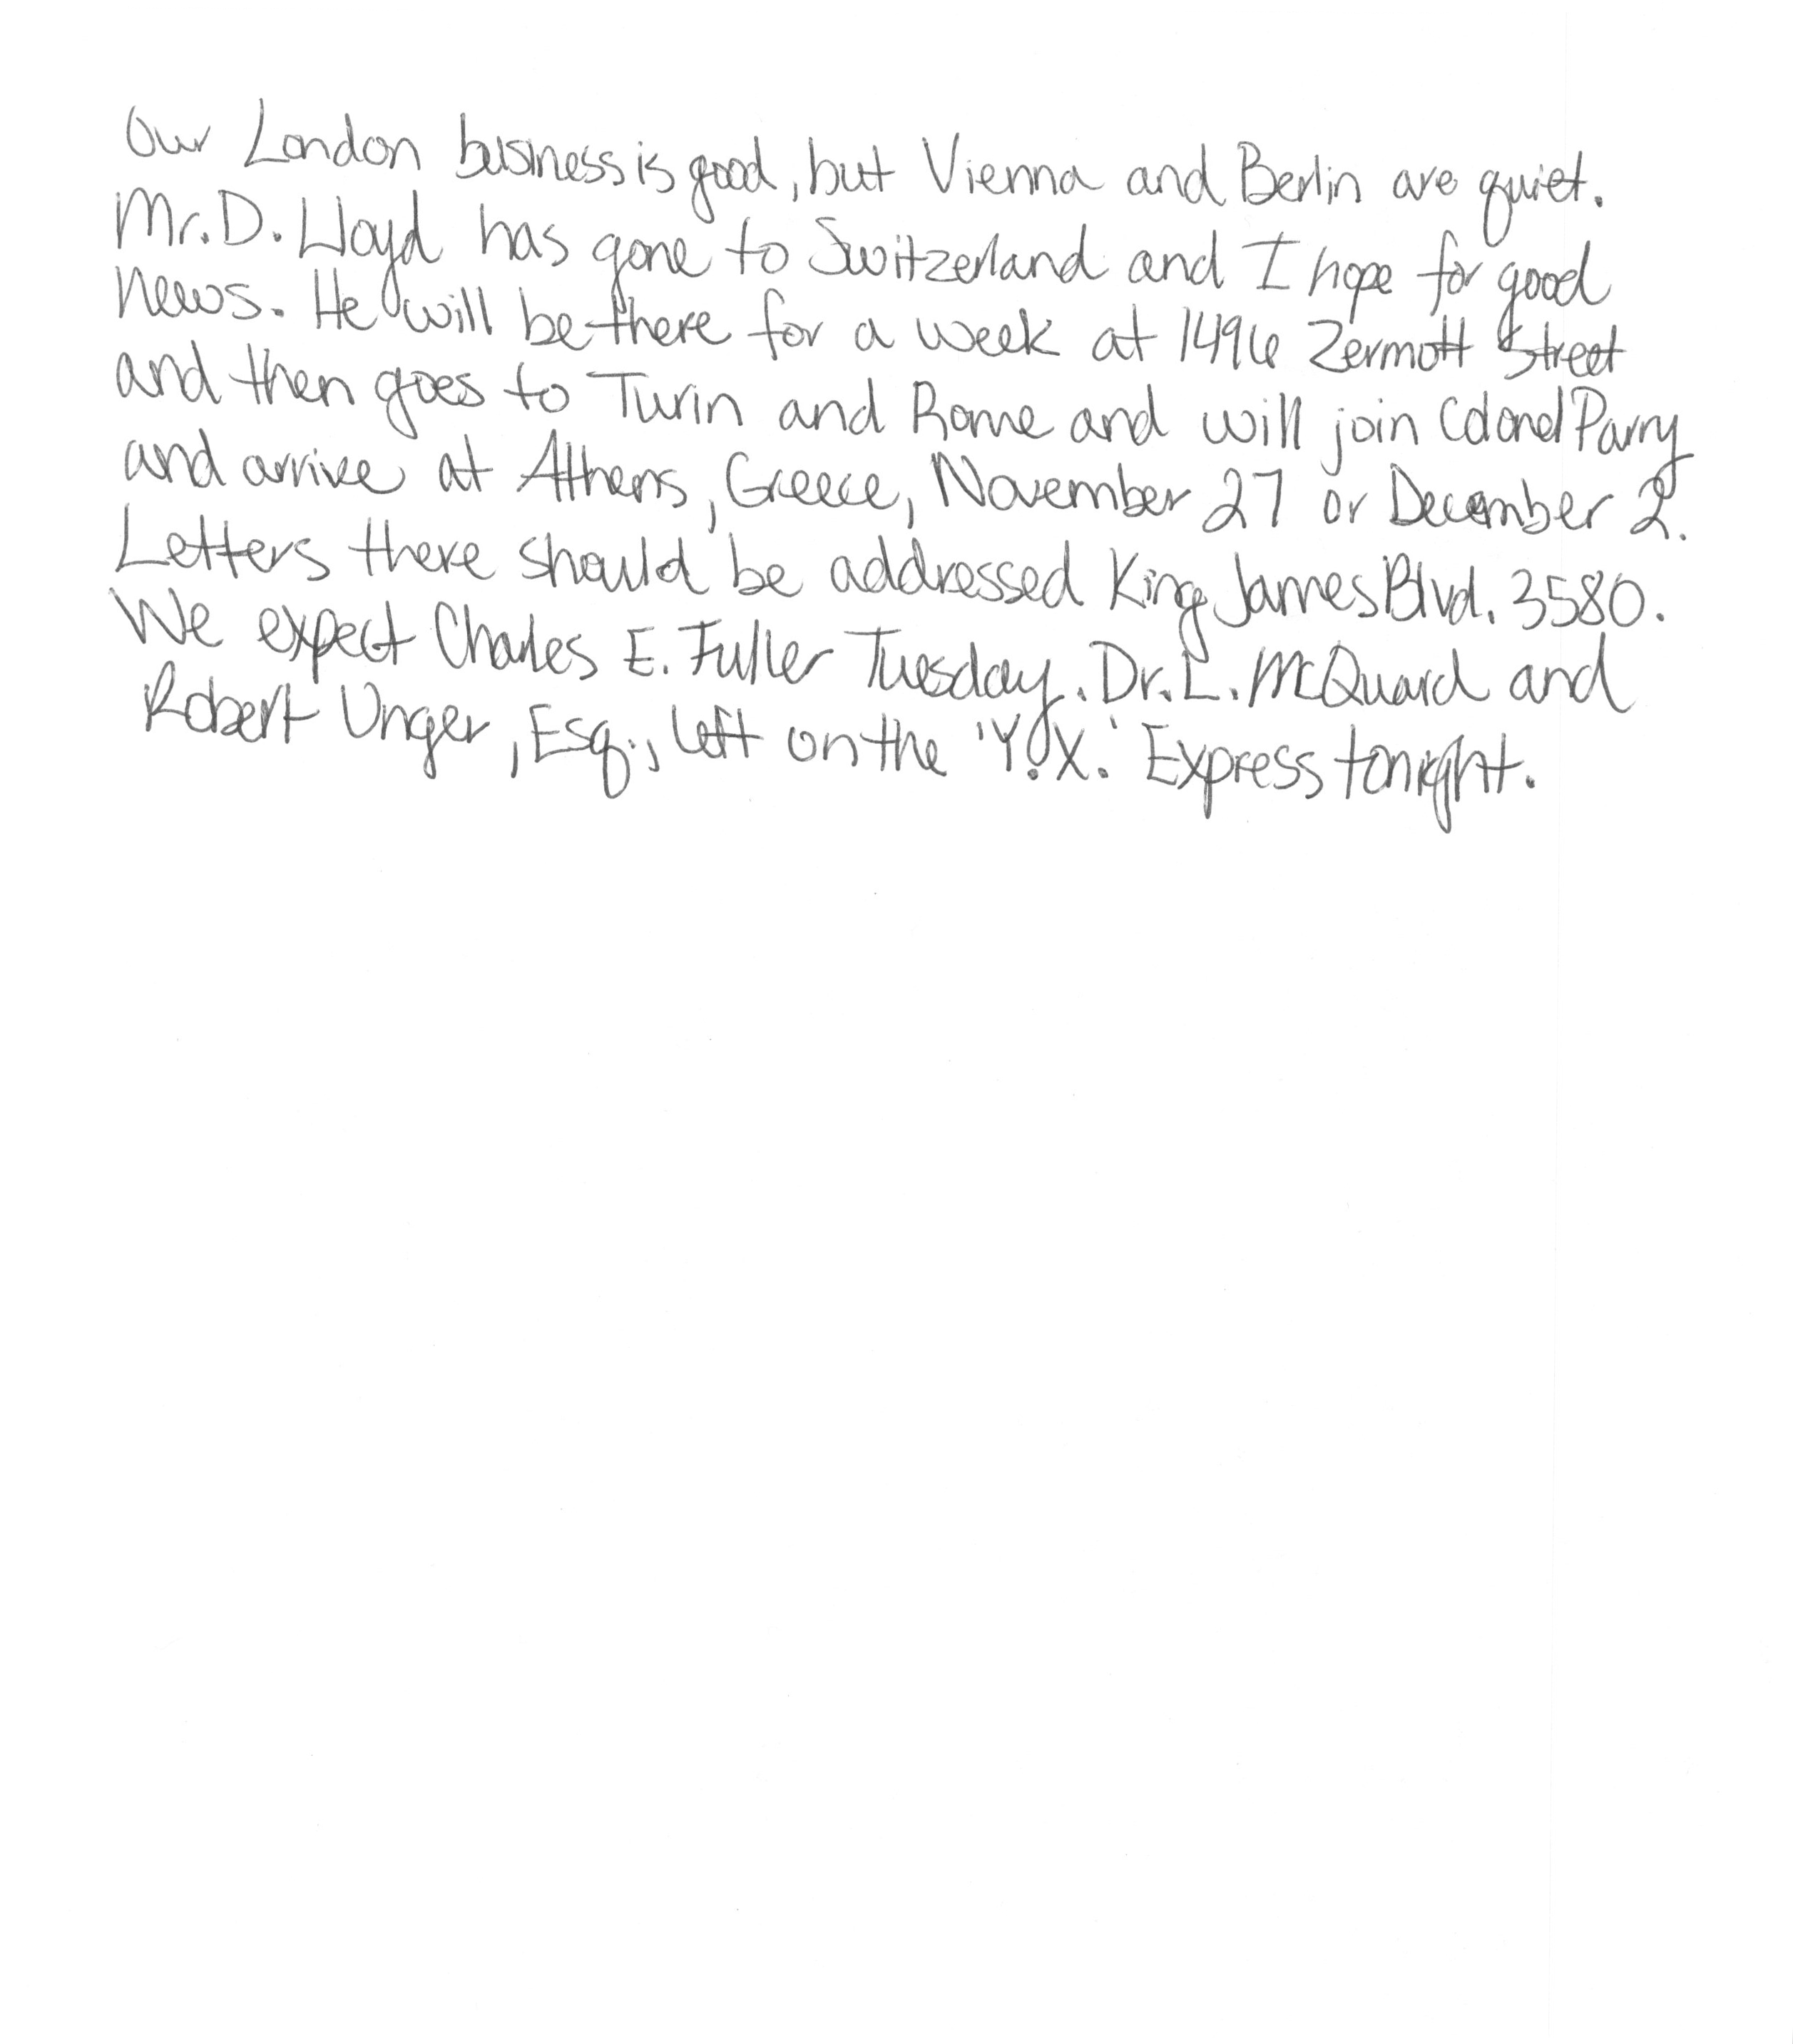 Our London business is good, but Vienna and Berlin are quiet.
Mr. D. Lloyd has gone to Switzerland and I hope for good
news. He will be there for a week at 1496 Zermott Street
and then goes to Turin and Rome and will join Colonel Parry
and arrive at Athens, Greece, November 27 or December 2.
Letters there should be addressed King James Blvd. 3580.
We expect Charles E. Fuller Tuesday. Dr. L. McQuard and
Robert Unger, Esq., left on the 'Y.X.' Express tonight.